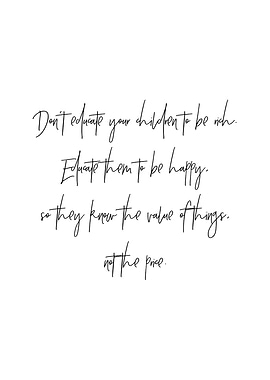 Don't educate your children to be rich.
Educate them to be happy,
so they know the value of things,
not the price.